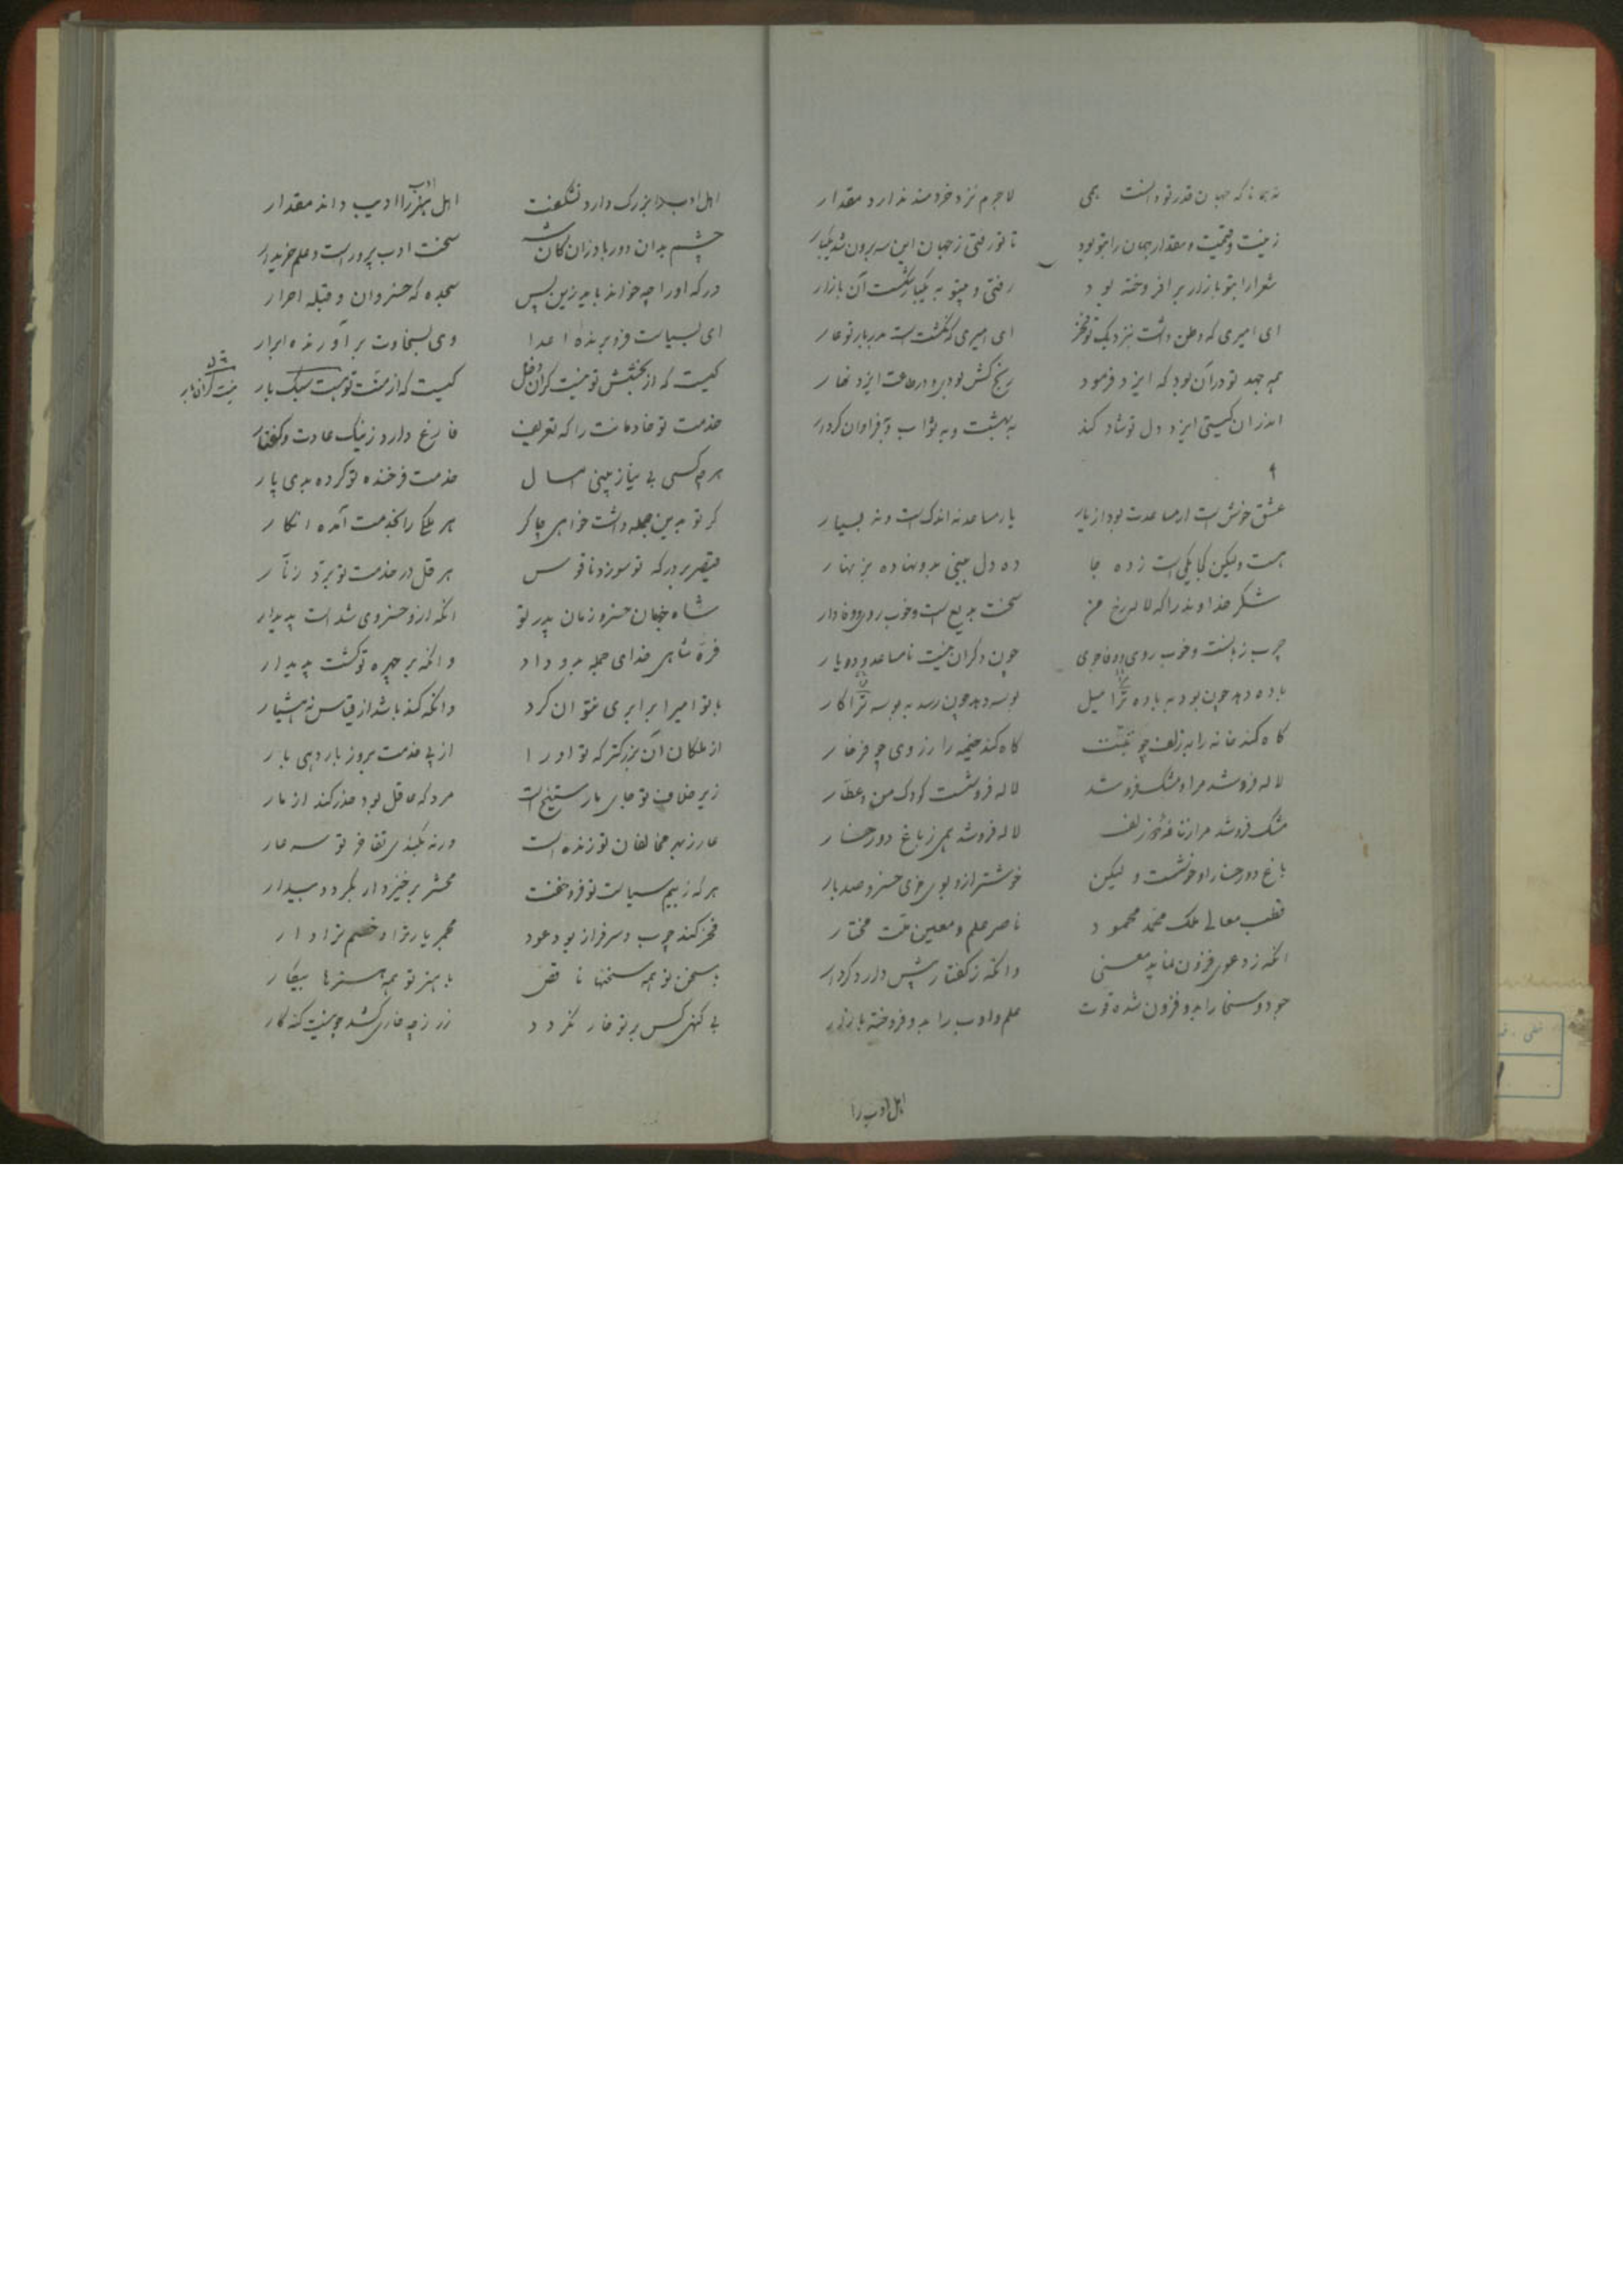 نه همانا که جهان قدر تو دانست همی
لاجرم نزد خردمند ندارد مقدار
زینت و قیمت و مقدار جهان را بتو بود
تا تو رفتی ز جهان این سه برون شد یکبار
شعرا را بتو بازار برافروخته بود
رفتی و با تو به یکبار شکست آن بازار
ای امیری که وطن داشت بنزدیک تو فخر
ای امیری که نگشت است بدربار تو عار
همه جهد تو در آن بود که ایزد فرمود
رنج کش بودی در طاعت ایزد هموار
اندران گیتی ایزد دل تو شاد کند
به بهشت و به ثواب و بفراوان کردار
۹
عشق خوش است ار مساعدت بود از یار
یار مساعد نه اندک است و نه بسیار
هست ولیکن کجا یکی است زده جا
ده دل بینی بدو نهاده بزنهار
شکر خداوند را که لاله رخ من
سخت بدیع است و خوب روی و وفادار
چرب زبانست و خوب روی و وفاجوی
چون دگران نیست نامساعد و دویار
باده دهد چون بود به باده ترا میل
بوسه دهد چون رسد به بوسه ترا کار
گاه کند خانه را به زلف چو تبت
گاه کند خیمه را ز روی چو فرخار
لاله فروشد مرا و مشک فروشد
لاله فروشست کودک من و عطار
مشک فروشد مرا ز نافهٔ زلف
لاله فروشد همی ز باغ دو رخسار
باغ دو رخسار او خوشست و لیکن
خوشتر ازو بوی خوی خسرو صد بار
قطب معالی ملک محمد محمود
ناصر علم و معین ملت مختار
آنکه ز دعوی فزون نماید معنی
وانکه ز گفتار بیش دارد کردار
جود و سخا را بدو فزون شده قوت
علم و ادب را بدو فروخته بازار
اهل ادب را
اهل ادب را بزرگ دارد نشگفت
اهل هنر را ادیب داند مقدار
ادب
چشم بدان دور باد ازان که آن شه
سخت ادب پرور است و علم خریدار
درگه او را چه خواند باید زین پس
سجده گه خسروان و قبله احرار
ای بسیاست فرو برندهٔ اعدا
وی بسخاوت برآورنده ابرار
کیست که از بخشش تو نیست گران دخل
کیست که از منت تو نیست سبک بار
نیست گران بار
خدمت تو خادمانت را که تعریف
فارغ دارد ز نیک عادت و گفتار
هر چه کسی بی نیاز بینی امسال
خدمت فرخنده تو کرده بدی پار
گر تو بدین جمله داشت خواهی چاکر
هر ملکی را بخدمت آمده انگار
قیصر بر درگه تو سوزد ناقوس
هرقل در خدمت تو برد زنار
شاه جهان خسرو زمان پدر تو
آنکه ازو خسروی شد است پدیدار
فرهٔ شاهی خدای جمله بدو داد
وانکه بر چهره تو گشت پدیدار
با تو امیرا برابری نتوان کرد
وانکه کند باشد از قیاس نه هشیار
از ملکان آن بزرگتر که تو او را
از پی خدمت بروز بار دهی بار
زیر خلاف تو جای مار ستنج است
مرد که عاقل بود حذر کند از مار
عار ز بهر مخالفان تو زنده است
ورنه بگیتی تفاخر تو سه عار
هر که ز بیم سیاست تو فروخفت
محشر برخیزد او نگردد بیدار
فخر کند چرب و سرفراز بود عود
مجمر یار ترا و خصم ترا دار
با سخن تو همه سخنها ناقص
با هنر تو همه هنرها بیکار
بی گنهی کس بر تو خار نگردد
زر ز چه خواری کشد چو نیست گنه کار